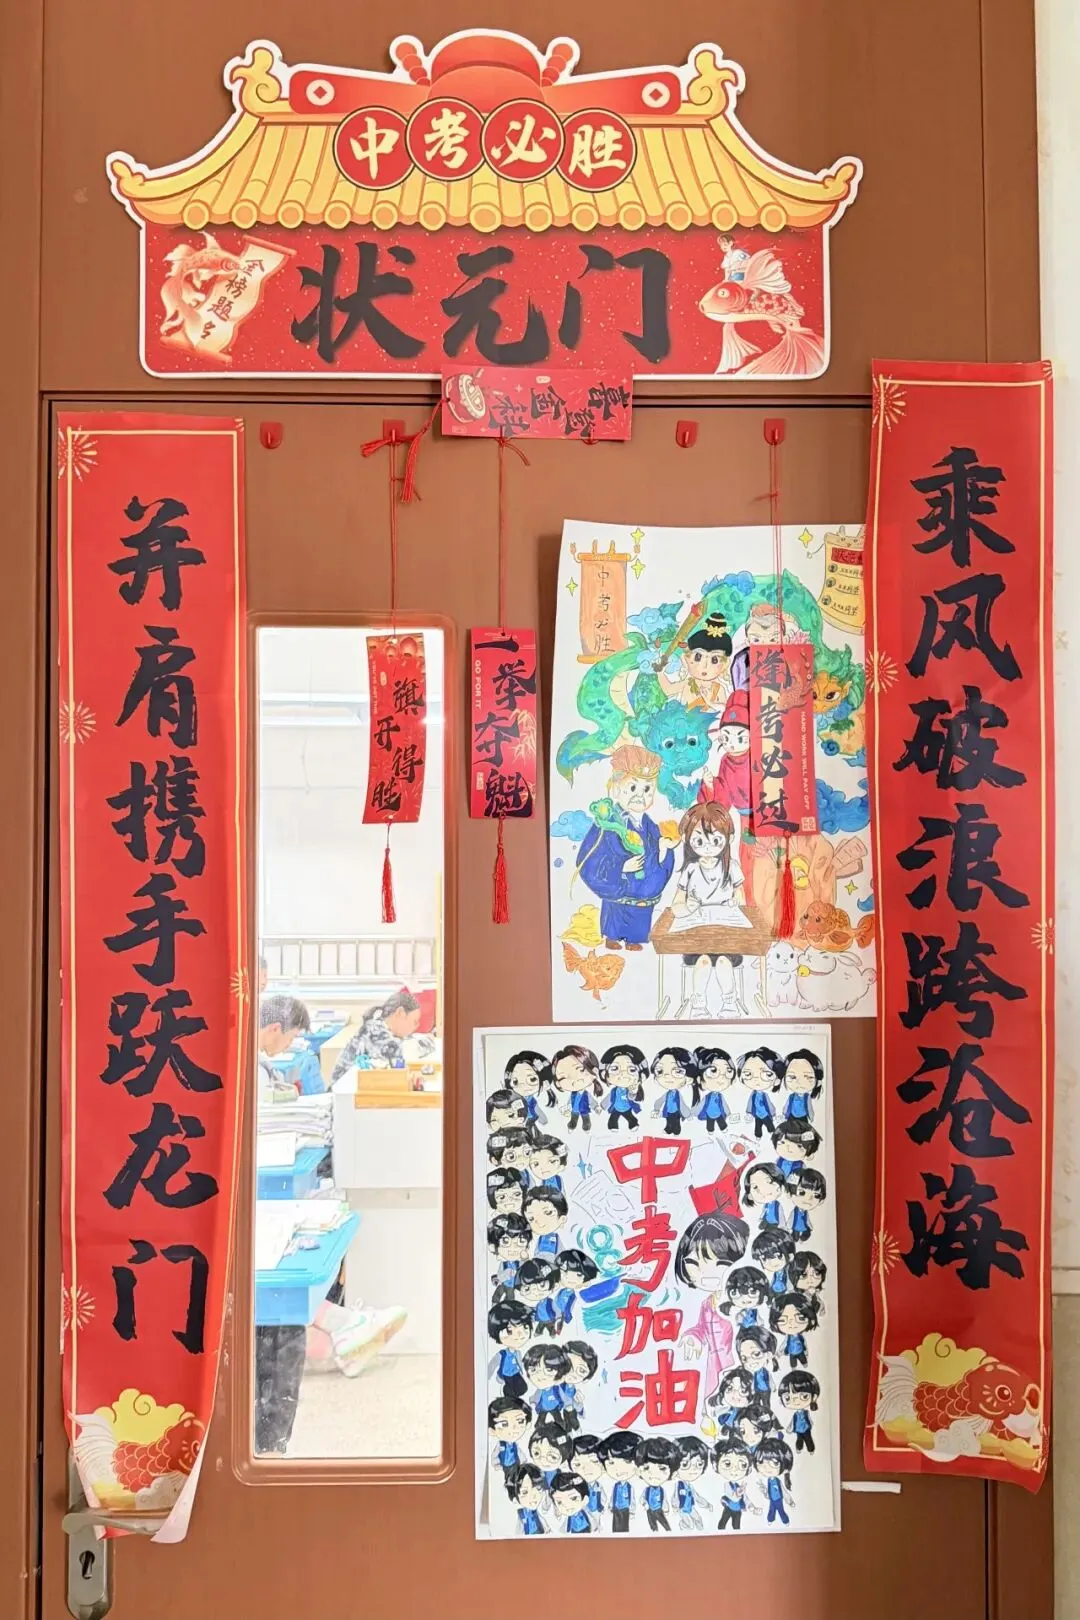 中考必胜
金榜题名
状元门
喜登金科
乘风破浪跨沧海
并肩携手跃龙门
旗开得胜
一举夺魁
GO FOR IT
逢考必过
HARD WORK WILL PAY OFF
中考必胜
中考加油